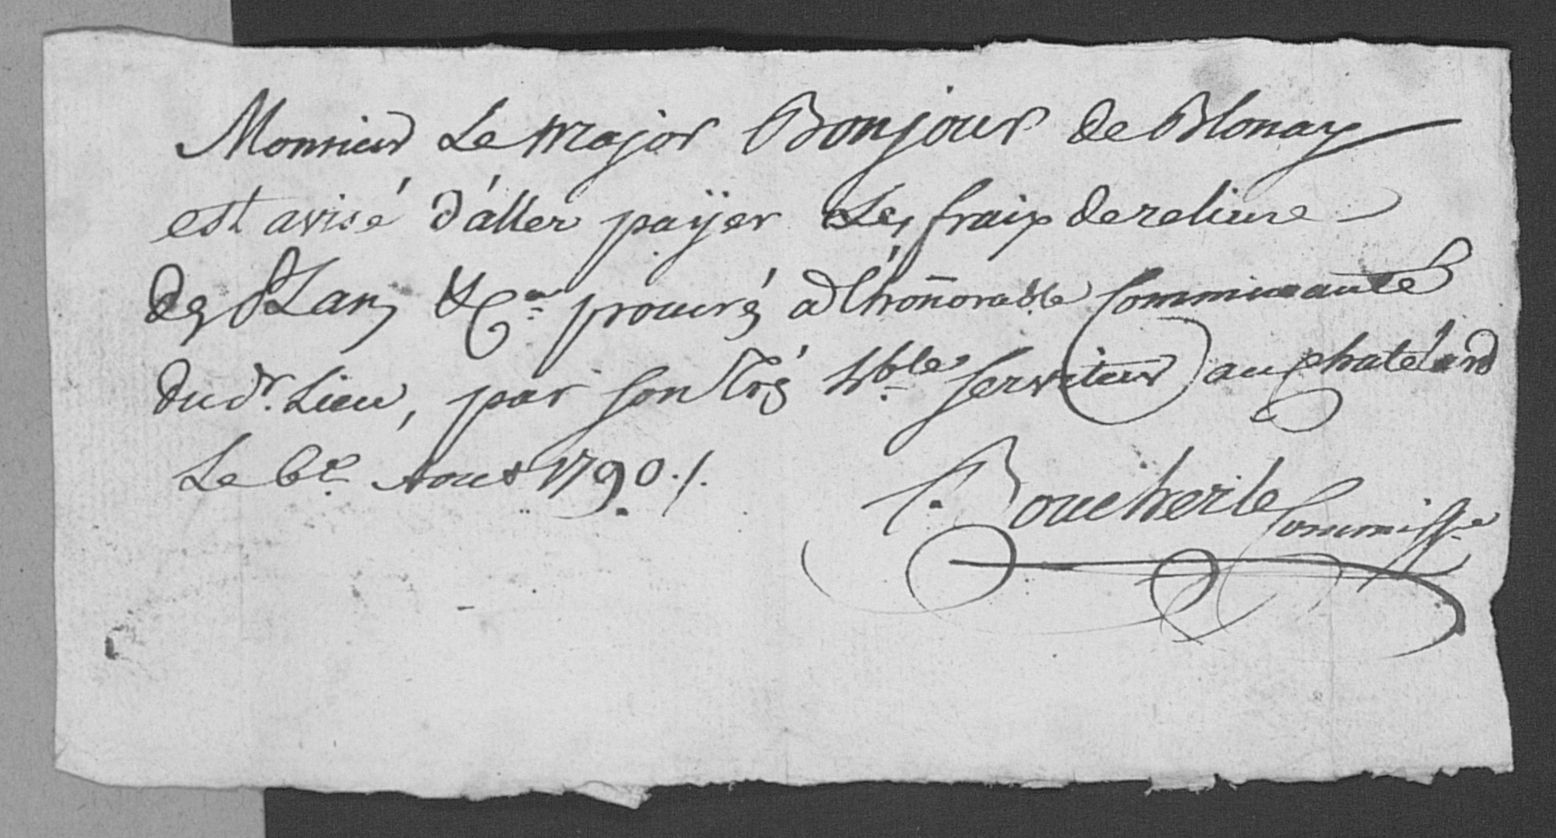 Monsieur Le Major Bonjour de Blonay
est avisé d'áller paÿer Les fraix de reliure
des Plans &Ca. procurés a l'hoñorable Commmeauté
du dt. Lieu, par son trés hble. serviteur au Chatélard
Le 6e. Aout 1790./.
Boucherle Commisse.